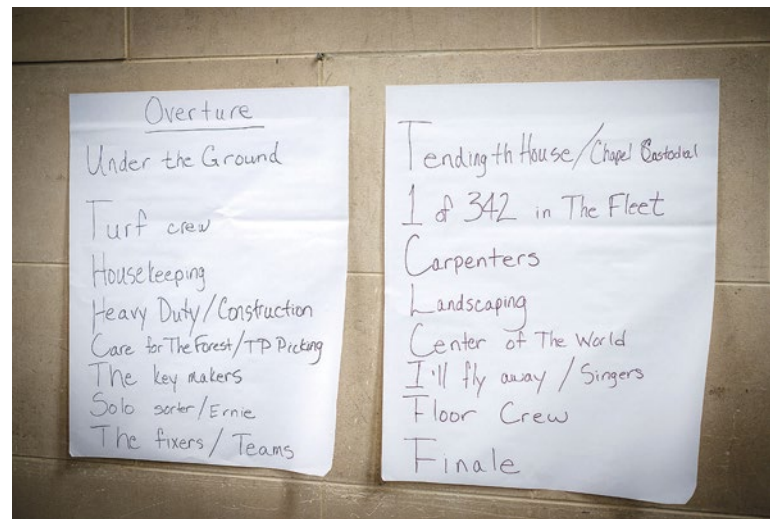 Overture
Under the Ground
Turf crew
Housekeeping
Heavy Duty/Construction
Care for The Forest/TP Picking
The key makers
Solo sorter/Ernie
The fixers/Teams
Tending th House/Chapel Custodial
1 of 342 in The Fleet
Carpenters
Landscaping
Center of The World
I'll fly away/Singers
Floor Crew
Finale